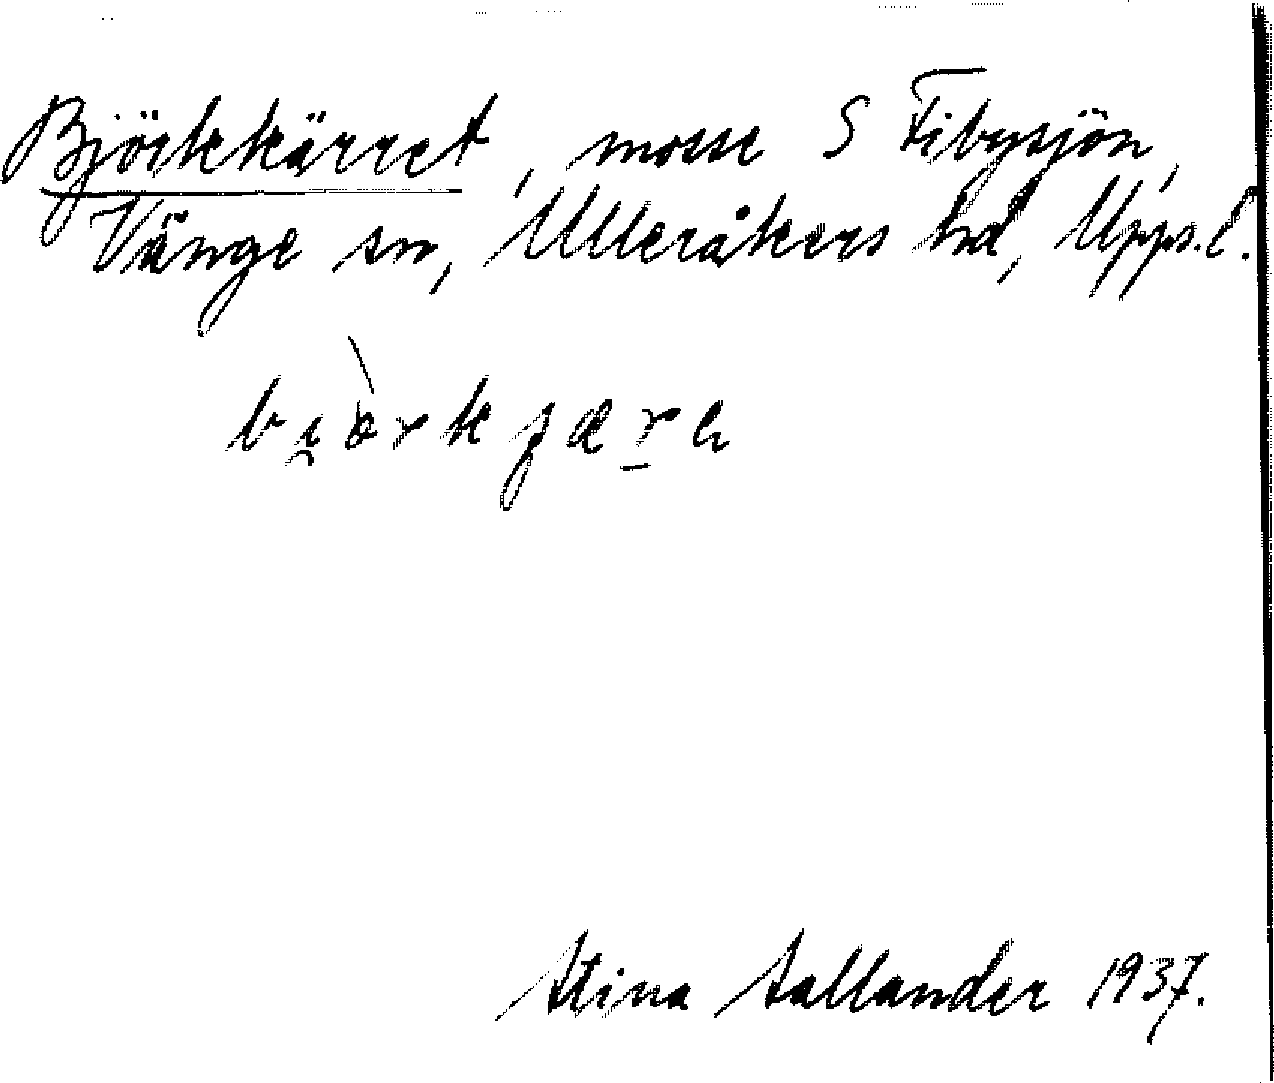 Björkkärret, mosse S Fibysjön,
Vänge sn, Ulleråkers hd, Upps. l.
bi̯ò̈rkɟæṟɐ
Stina Sallander 1937.